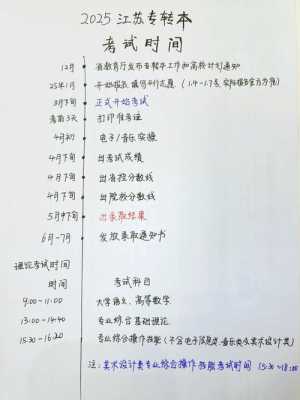 2025 江苏专转本
考试时间
12月 省教育厅发布专转本工作和高校计划通知
25年1月 开始报名、填写平行志愿 (1.4-1.7号,实际报名官方为准)
3月下旬 正式开始考试
考前3天 打印准考证
4月初 电子/音乐实操
4月下旬 出考试成绩
4月下旬 出省控分数线
4月下旬 出院校分数线
5月中下旬 出录取结果
6月-7月 发放录取通知书
理论考试时间
时间 考试科目
9:00-11:00 大学语文、高等数学
13:00-14:40 专业综合基础理论
15:30-16:20 专业综合操作技能(不含电子信息类、音乐类及美术设计类)
注:美术设计类专业综合操作技能考试时间 15:30-18:00